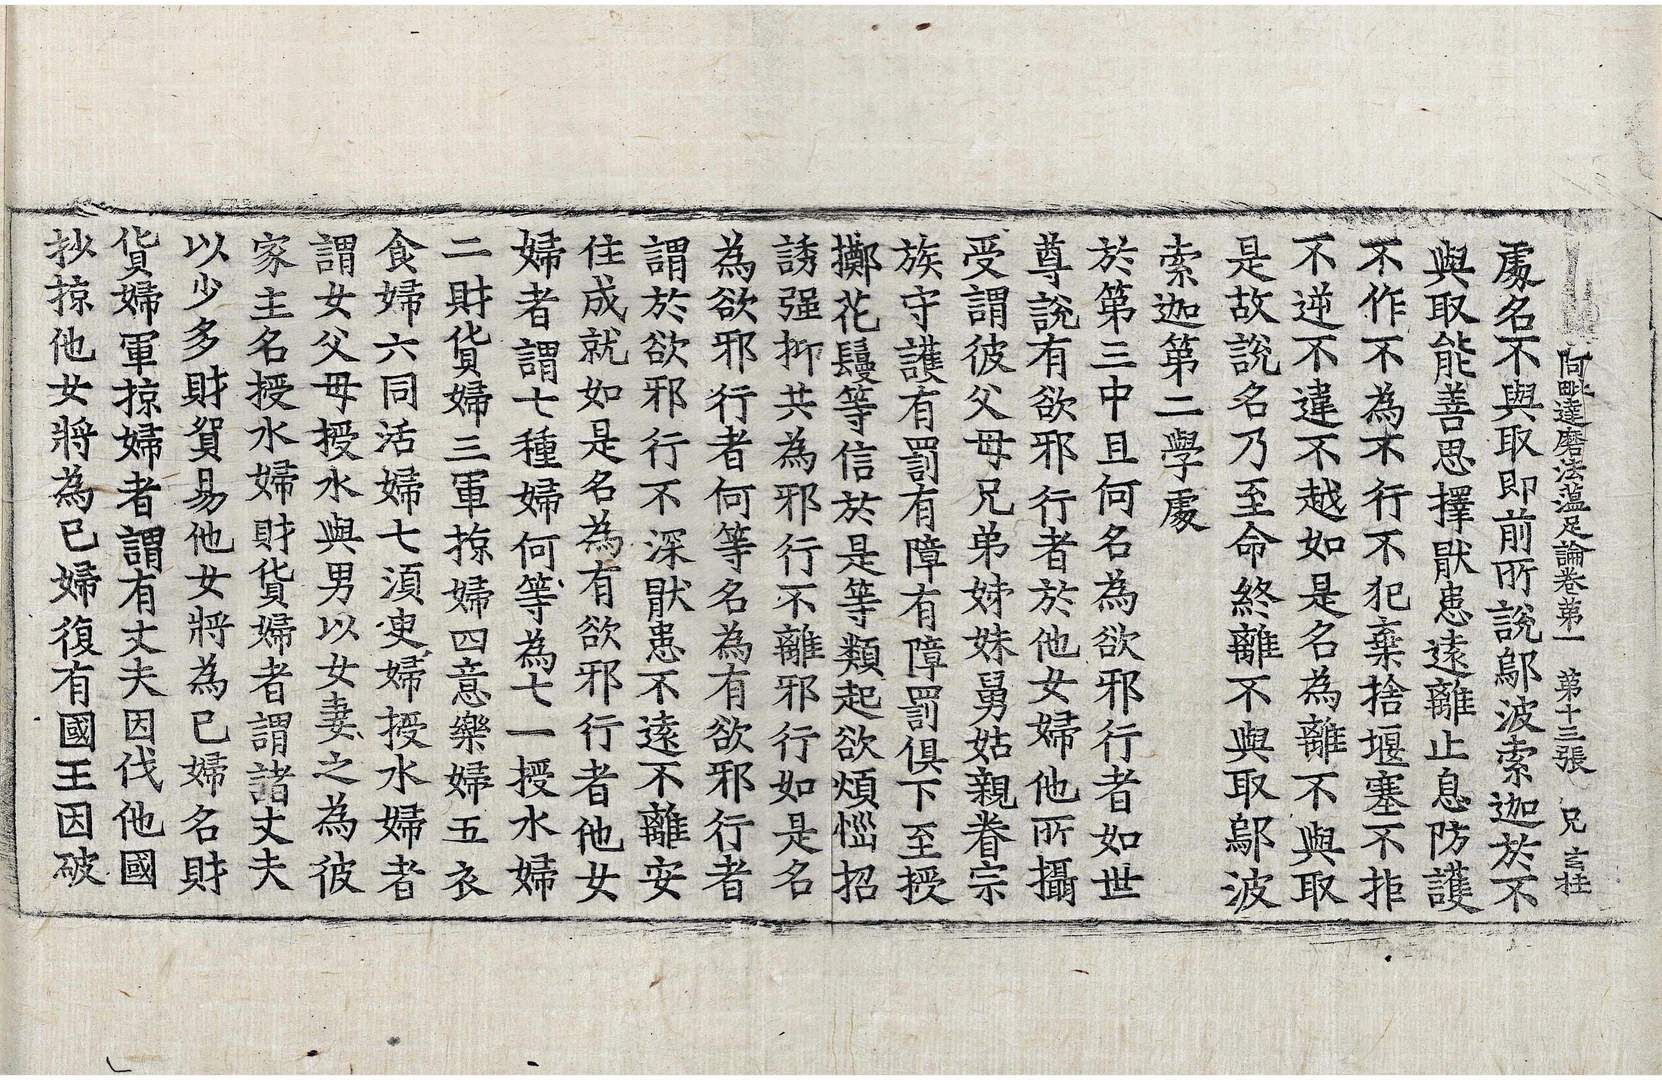 阿毗達磨法蘊足論卷第一 第十三張 兄 玄柱
處名不與取即前所說鄔波索迦於不
與取能善思擇猒患遠離止息防護
不作不為不行不犯棄捨堰塞不拒
不逆不違不越如是名為離不與取
是故說名乃至命終離不與取鄔波
索迦第二學處
於第三中且何名為欲邪行者如世
尊說有欲邪行者於他女婦他所攝
受謂彼父母兄弟姊妹舅姑親眷宗
族守護有罰有障有障罰俱下至授
擲花鬘等信於是等類起欲煩惱招
誘强抑共為邪行不離邪行如是名
為欲邪行者何等名為有欲邪行者
謂於欲邪行不深猒患不遠不離安
住成就如是名為有欲邪行者他女
婦者謂七種婦何等為七一授水婦
二財貨婦三軍掠婦四意樂婦五衣
食婦六同活婦七湏臾婦授水婦者
謂女父母授水與男以女妻之為彼
家主名授水婦財貨婦者謂諸丈夫
以少多財貿易他女將為已婦名財
貨婦軍掠婦者謂有丈夫因伐他國
抄掠他女將為已婦復有國王因破